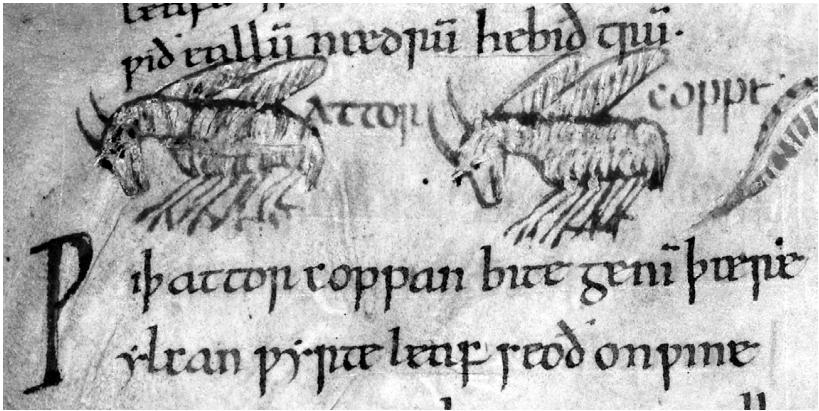 ƿið eallū nædrū
attor coppe
Ƿiþ attor coppan bite genī þære
ylcan ƿyrte leaf seoð on ƿine